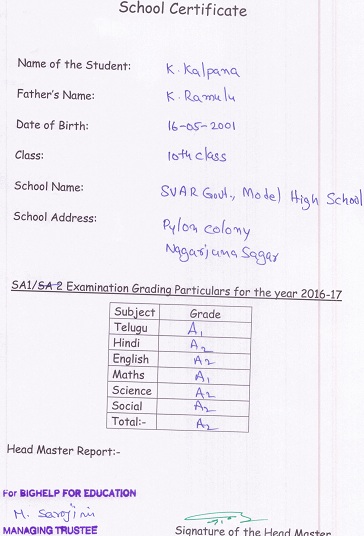 School Certificate
Name of the Student: K. Kalpana
Father's Name: K. Ramulu
Date of Birth: 16-05-2001
Class: 10th class
School Name: SVAR Govt., Model High School
School Address: Pylon colony
Nagarjuna Sagar
SA1/SA 2 Examination Grading Particulars for the year 2016-17
Subject Grade
Telugu A1
Hindi A2
English A2
Maths A1
Science A2
Social A2
Total:- A2
Head Master Report:-
For BIGHELP FOR EDUCATION
M. Sarojini
MANAGING TRUSTEE
Signature of the Head Master